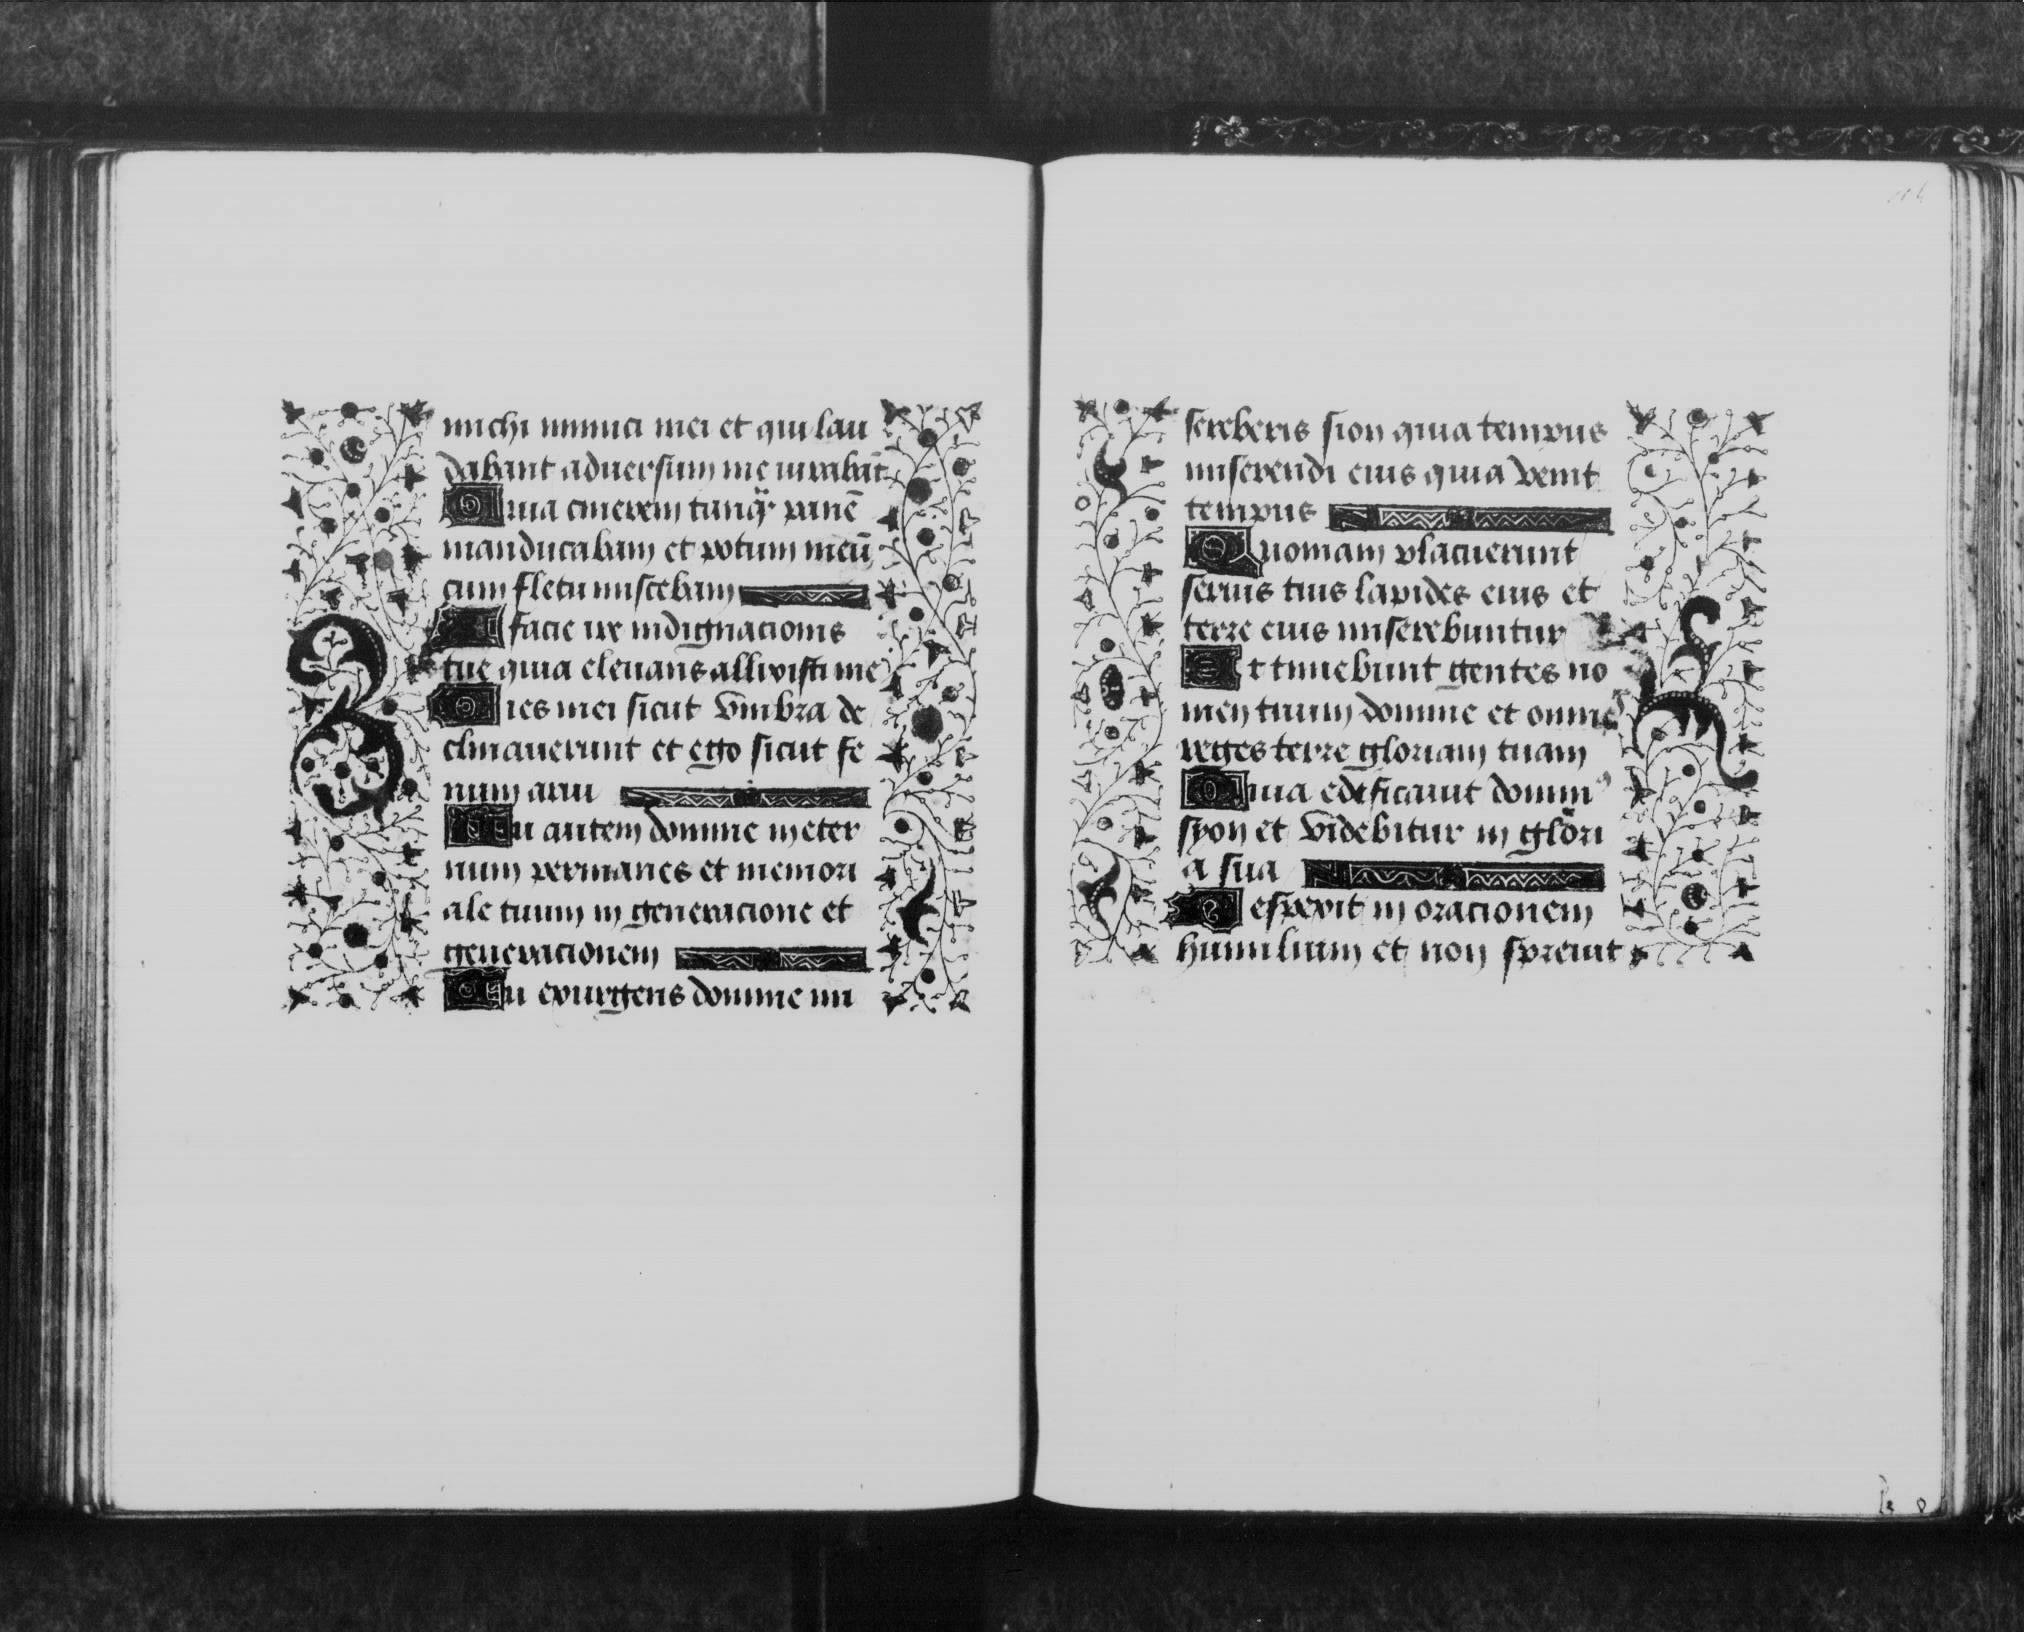 michi inimici mei et qui lau
dabant adversum me iurabāt
Quia cinerem tanq̄ panē
manducabam et potum meū
cum fletu miscebam
A facie ire indignacionis
tue quia elevans allixisti me
Dies mei sicut vmbra de
clinaverunt et ego sicut fe
num arui
Tu autem domine in eter
num permanes et memori
ale tuum in generacione et
generacionem
Tu exurgens domine mi
sereberis sion quia tempus
miserendi eius quia venit
tempus
Quoniam placuerunt
servis tuis lapides eius et
terre eius miserebuntur
Et timebunt gentes no
men tuum domine et omnes
reges terre gloriam tuam
Quia edificavit dominꝰ
syon et videbitur in glori
a sua
Respexit in oracionem
humilium et non sprevit